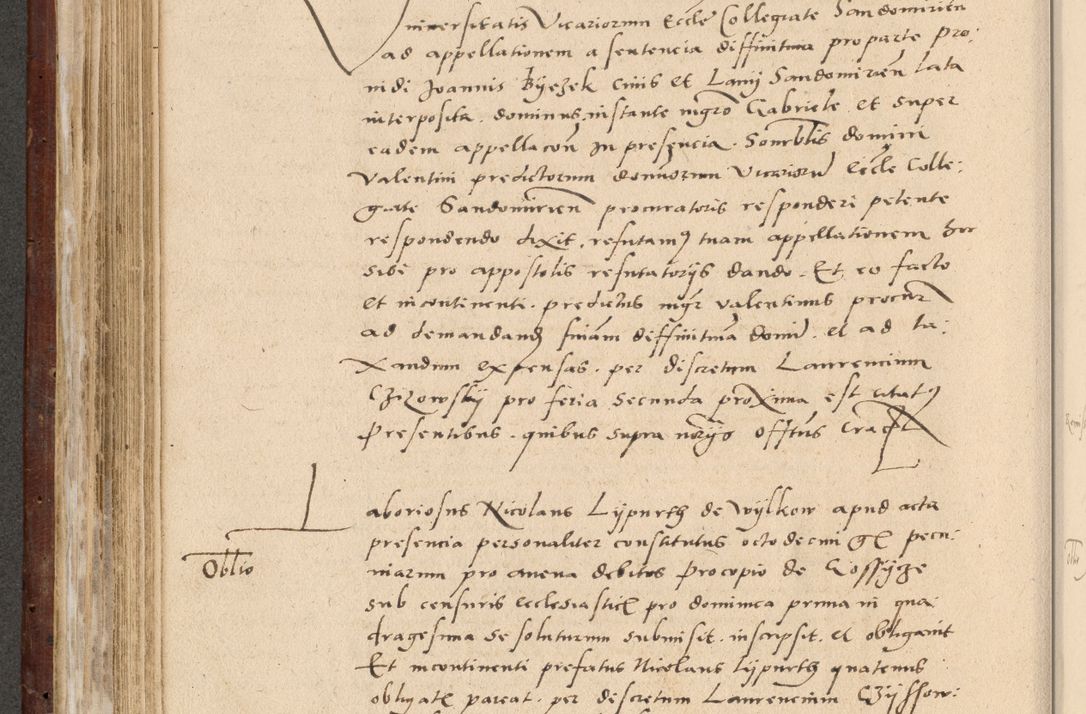 Universitatis Vicariorum Eccle Collegiate Sandomirien
ad appellationem a sentencia diffinitiva pro parte pro:
vidi Joannis Byezek civis et Lanij Sandomirien lata
interposita. dominus, instante mgro Gabriele et super
eadem appellacon in presencia. honorablis domini
Valentini predictorum dominorum vicariorum Eccle Colle:
giate Sandomirien procuratoris respondere petente
respondendo dixit, refutamus tuam appellationem hoc
tibi pro appostolis refutatorijs dando. Et eo facto
et incontinenti. predictus mgr Valentinus procur
ad demandand sniam diffinitivam domi. et ad ta:
xandum expensas. per discretum Laurencium
Czizowskij pro feria Secunda proxima est citatus
Presentibus. quibus supra notrijs offtus Crac
Laboriosus Nicolaus Lijpurth de Wijlkow apud acta
Oblio
presencia personaliter constitutus octodecim gr pecu:
niarum pro avena debitos Procopio de Gossijcze
sub censuris ecclesiastic pro dominica prima in qua:
dragesima se soluturum submisit. inscripsit. et obligavit
Et incontinenti prefatus Nicolaus lijpurth quatenus
obligat pareat. per discretum Laurencium Czijssow: